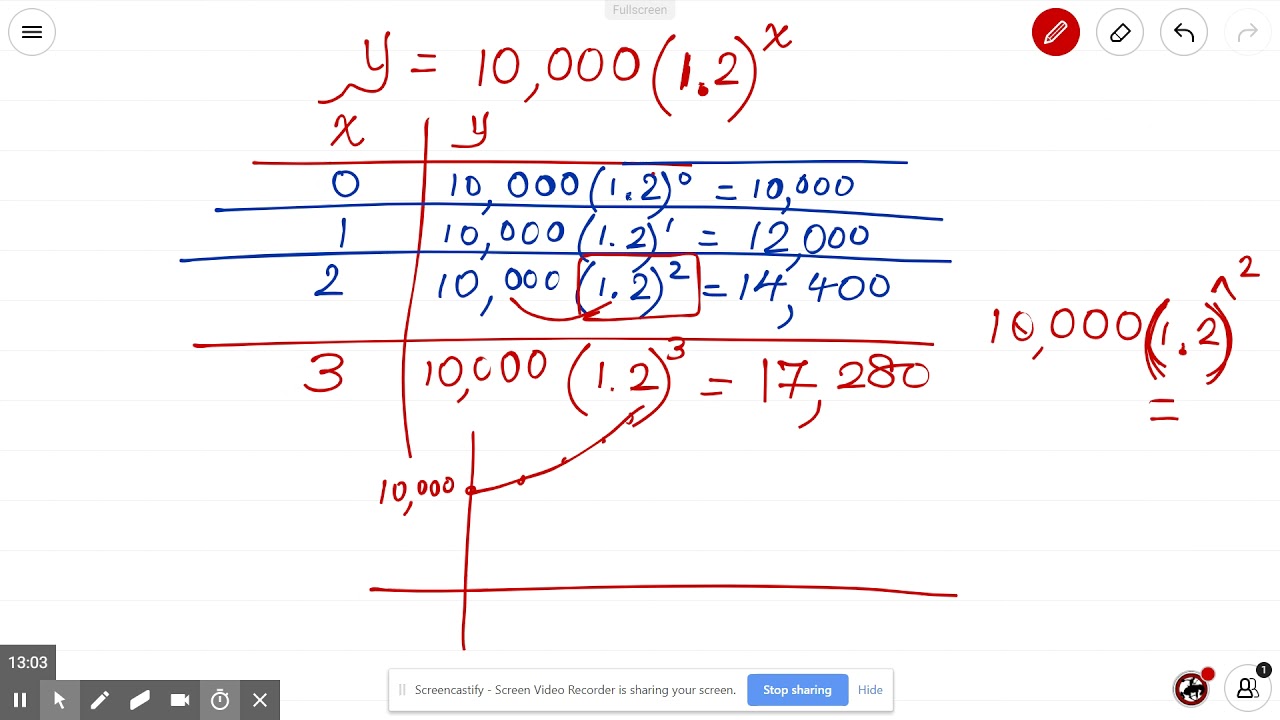 Fullscreen
y = 10,000(1.2)^x
x y
0 10,000(1.2)^0 = 10,000
1 10,000(1.2)^1 = 12,000
2 10,000(1.2)^2 = 14,400
3 10,000(1.2)^3 = 17,280
10,000(1.2)^2
=
10,000
13:03
Screencastify - Screen Video Recorder is sharing your screen. Stop sharing Hide
1